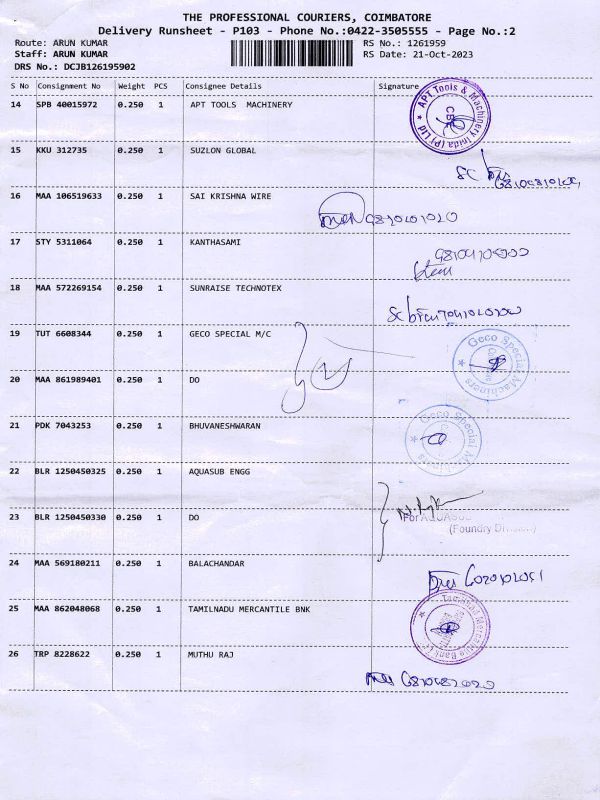 THE PROFESSIONAL COURIERS, COIMBATORE
Delivery Runsheet - P103 - Phone No.:0422-3505555 - Page No.:2
Route: ARUN KUMAR RS No.: 1261959
Staff: ARUN KUMAR RS Date: 21-Oct-2023
DRS No.: DCJB126195902
S No Consignment No Weight PCS Consignee Details Signature
14 SPB 40015972 0.250 1 APT TOOLS MACHINERY
APT Tools & Machinery India (P) Ltd
CBE
15 KKU 312735 0.250 1 SUZLON GLOBAL
16 MAA 106519633 0.250 1 SAI KRISHNA WIRE
17 STY 5311064 0.250 1 KANTHASAMI
18 MAA 572269154 0.250 1 SUNRAISE TECHNOTEX
19 TUT 6608344 0.250 1 GECO SPECIAL M/C
Geco Special Machines
20 MAA 861989401 0.250 1 DO
21 PDK 7043253 0.250 1 BHUVANESHWARAN
Geco Special Machines
22 BLR 1250450325 0.250 1 AQUASUB ENGG
23 BLR 1250450330 0.250 1 DO
For AQUASUB
(Foundry Division)
24 MAA 569180211 0.250 1 BALACHANDAR
25 MAA 862048068 0.250 1 TAMILNADU MERCANTILE BNK
Tamilnad Mercantile Bank
26 TRP 8228622 0.250 1 MUTHU RAJ